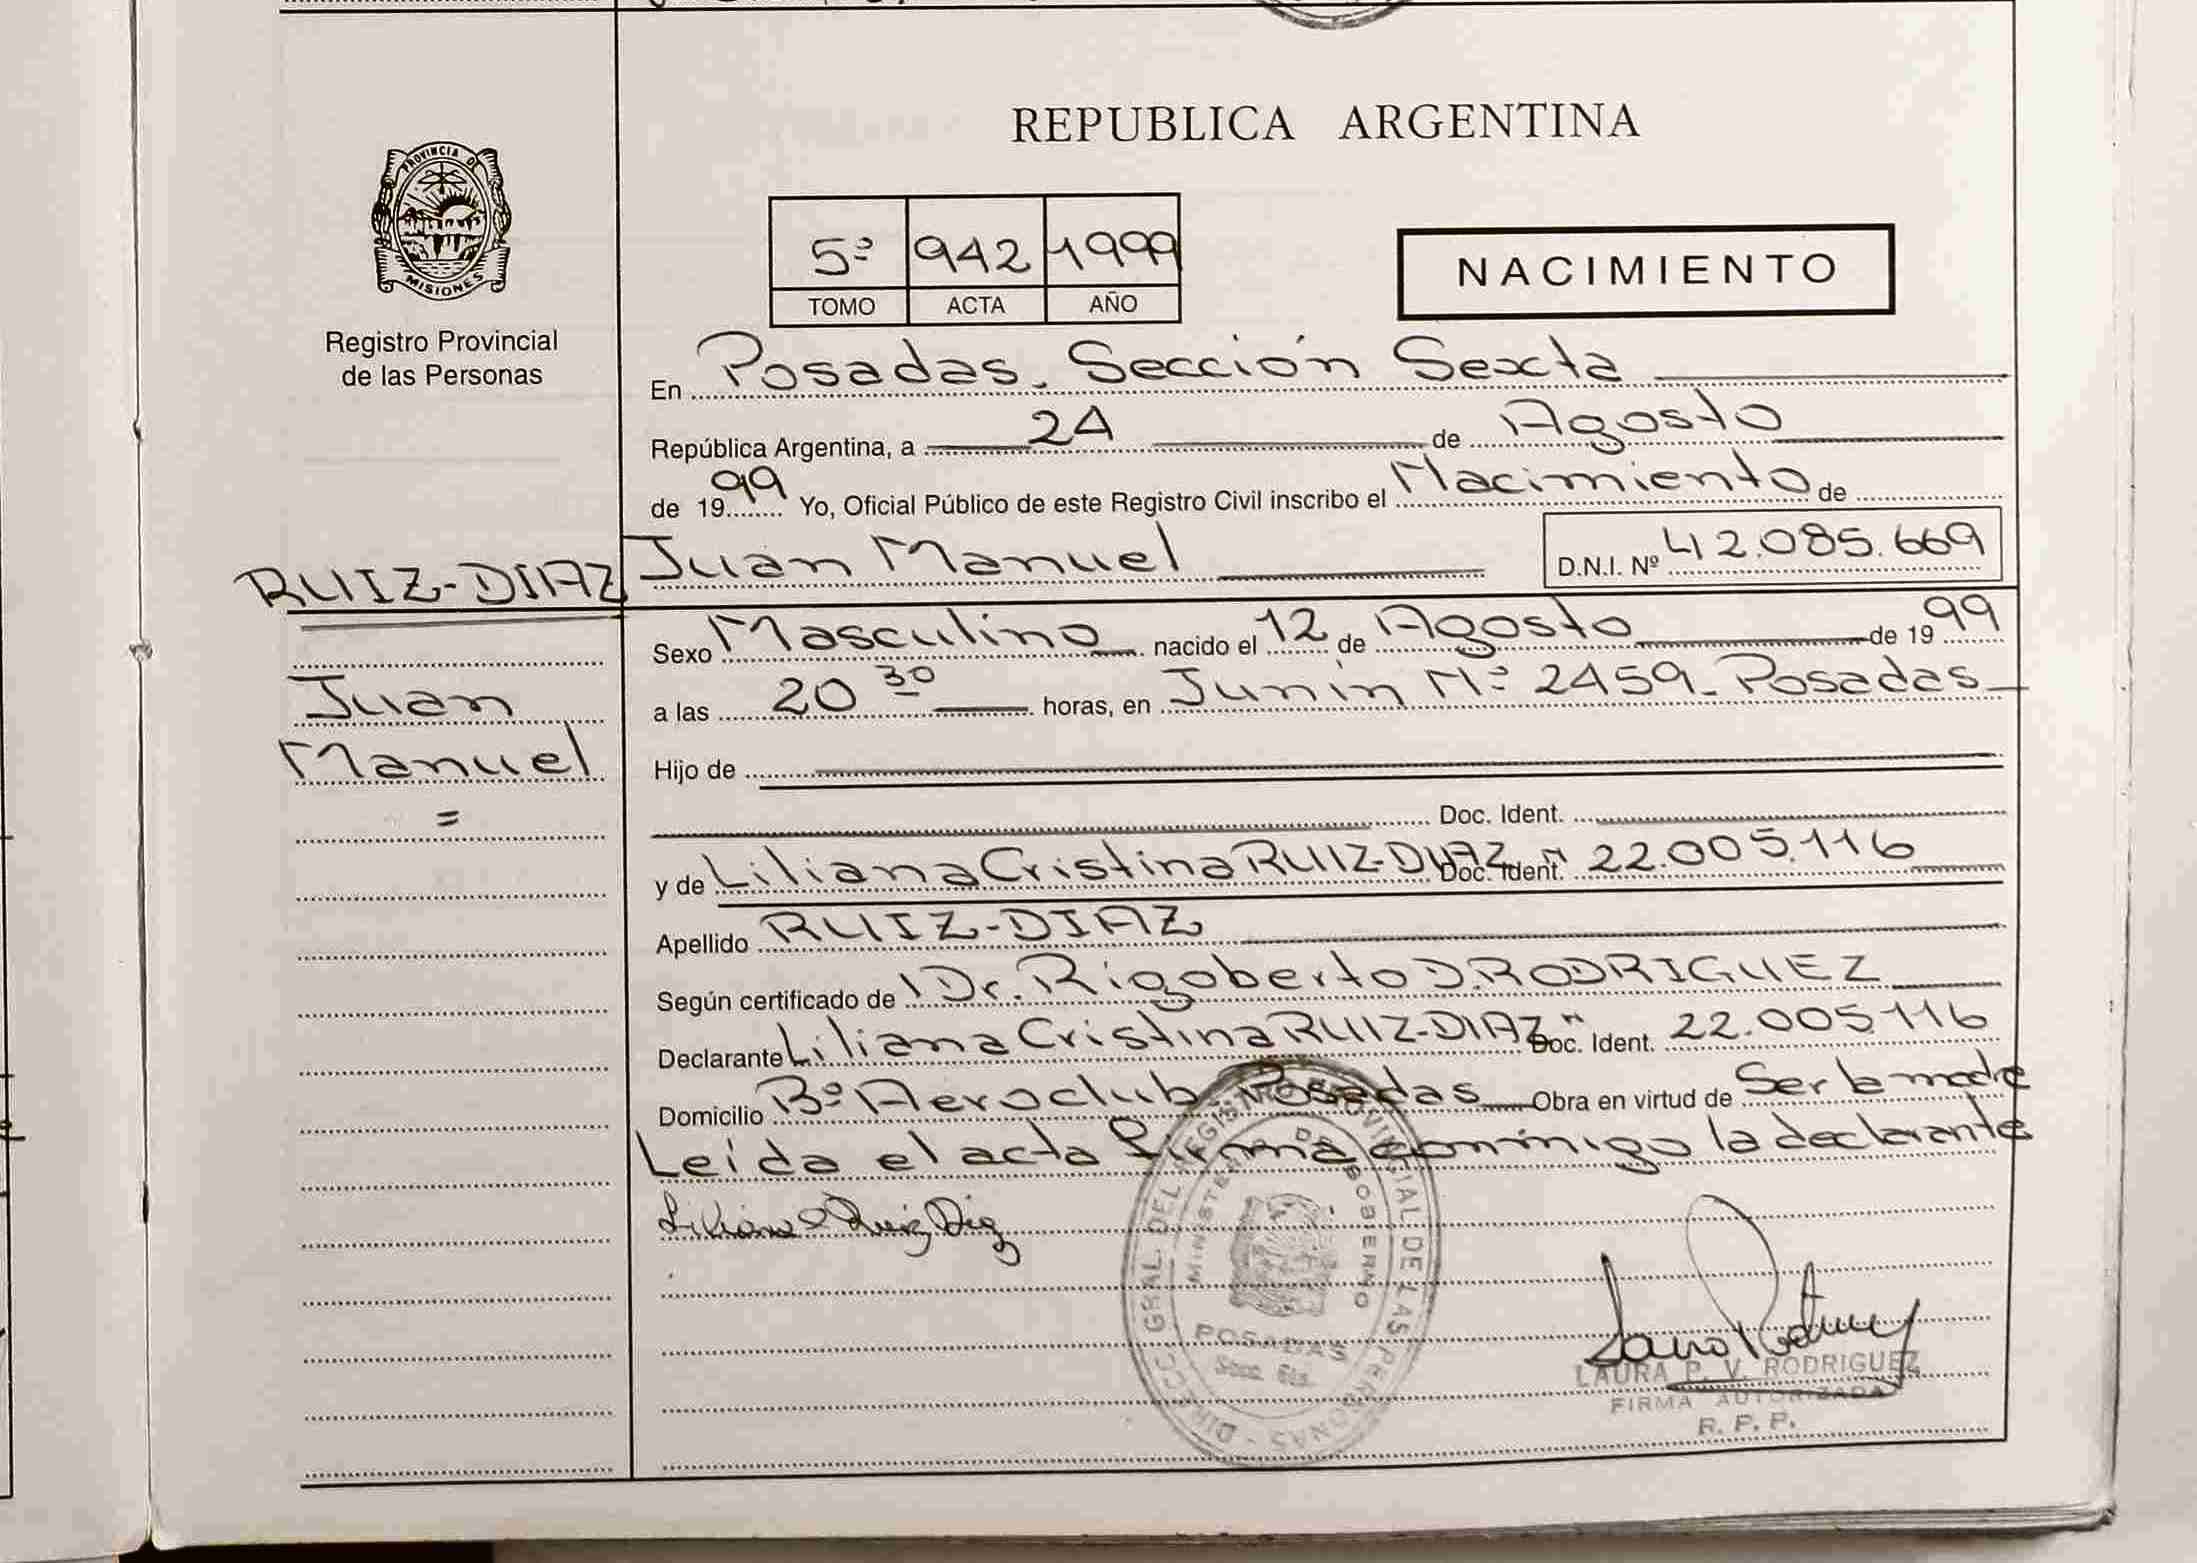 REPUBLICA ARGENTINA
PROVINCIA DE MISIONES
Registro Provincial
de las Personas
5º 942 1999
TOMO ACTA AÑO
NACIMIENTO
En Posadas. Sección Sexta
República Argentina, a 24 de Agosto
de 1999 Yo, Oficial Público de este Registro Civil inscribo el Nacimiento de
RUIZ-DIAZ Juan Manuel D.N.I. Nº 42.085.669
Juan
Manuel
=
Sexo Masculino nacido el 12 de Agosto de 1999
a las 20 30 horas, en Junín Nº 2459 - Posadas
Hijo de
Doc. Ident.
y de Liliana Cristina RUIZ-DIAZ Doc. Ident. " 22.005.116
Apellido RUIZ-DIAZ
Según certificado de Dr. Rigoberto D. RODRIGUEZ
Declarante Liliana Cristina RUIZ-DIAZ Doc. Ident. " 22.005.116
Domicilio Bº Aeroclub. Posadas Obra en virtud de Ser la madre
Leída el acta firma conmigo la declarante
Liliana Ruiz Diaz
DIRECC. GRAL. DEL REGISTRO PROVINCIAL DE LAS PERSONAS -
MINISTERIO DE GOBIERNO
POSADAS
Secc. 6ta.
LAURA P. V. RODRIGUEZ
FIRMA AUTORIZADA
R. P. P.